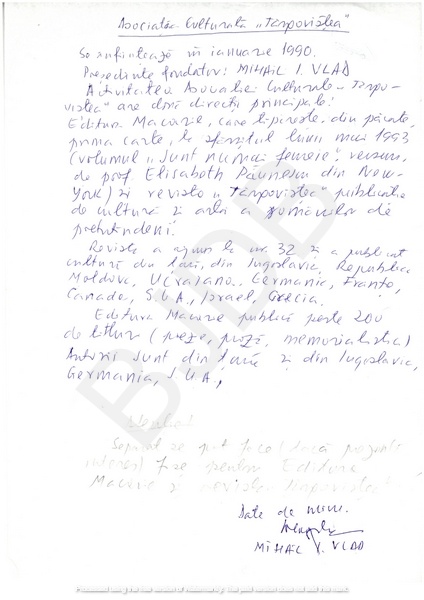 Asociația Culturală „Târgoviștea"
Se înființează în ianuarie 1990.
Președinte fondator: MIHAIL I. VLAD
Activitatea Asociației Culturale „Târgo-
viștea" are două direcții principale:
Editura Macarie, care tipărește, din păcate,
prima carte, la sfârșitul lunii mai 1993
(volumul „Sunt numai femeie", versuri,
de prof. Elisabeth Păunescu din New-
York) și revista „Târgoviștea" publicație
de cultură și artă a românilor de
pretutindeni.
Revista a ajuns la nr. 32 și a publicat
cultură din țară, din Iugoslavia, Republica
Moldova, Ucraina, Germania, Franța,
Canada, S.U.A., Israel, Grecia.
Editura Macarie publică peste 200
de titluri (poezie, proză, memorialistică)
Autorii sunt din țară și din Iugoslavia,
Germania, S.U.A.,
Separat se pot face (dacă prezintă
interes) fișe pentru Editura
Macarie și revista Târgoviștea
Date de mine.
MIHAIL I. VLAD
BJDB